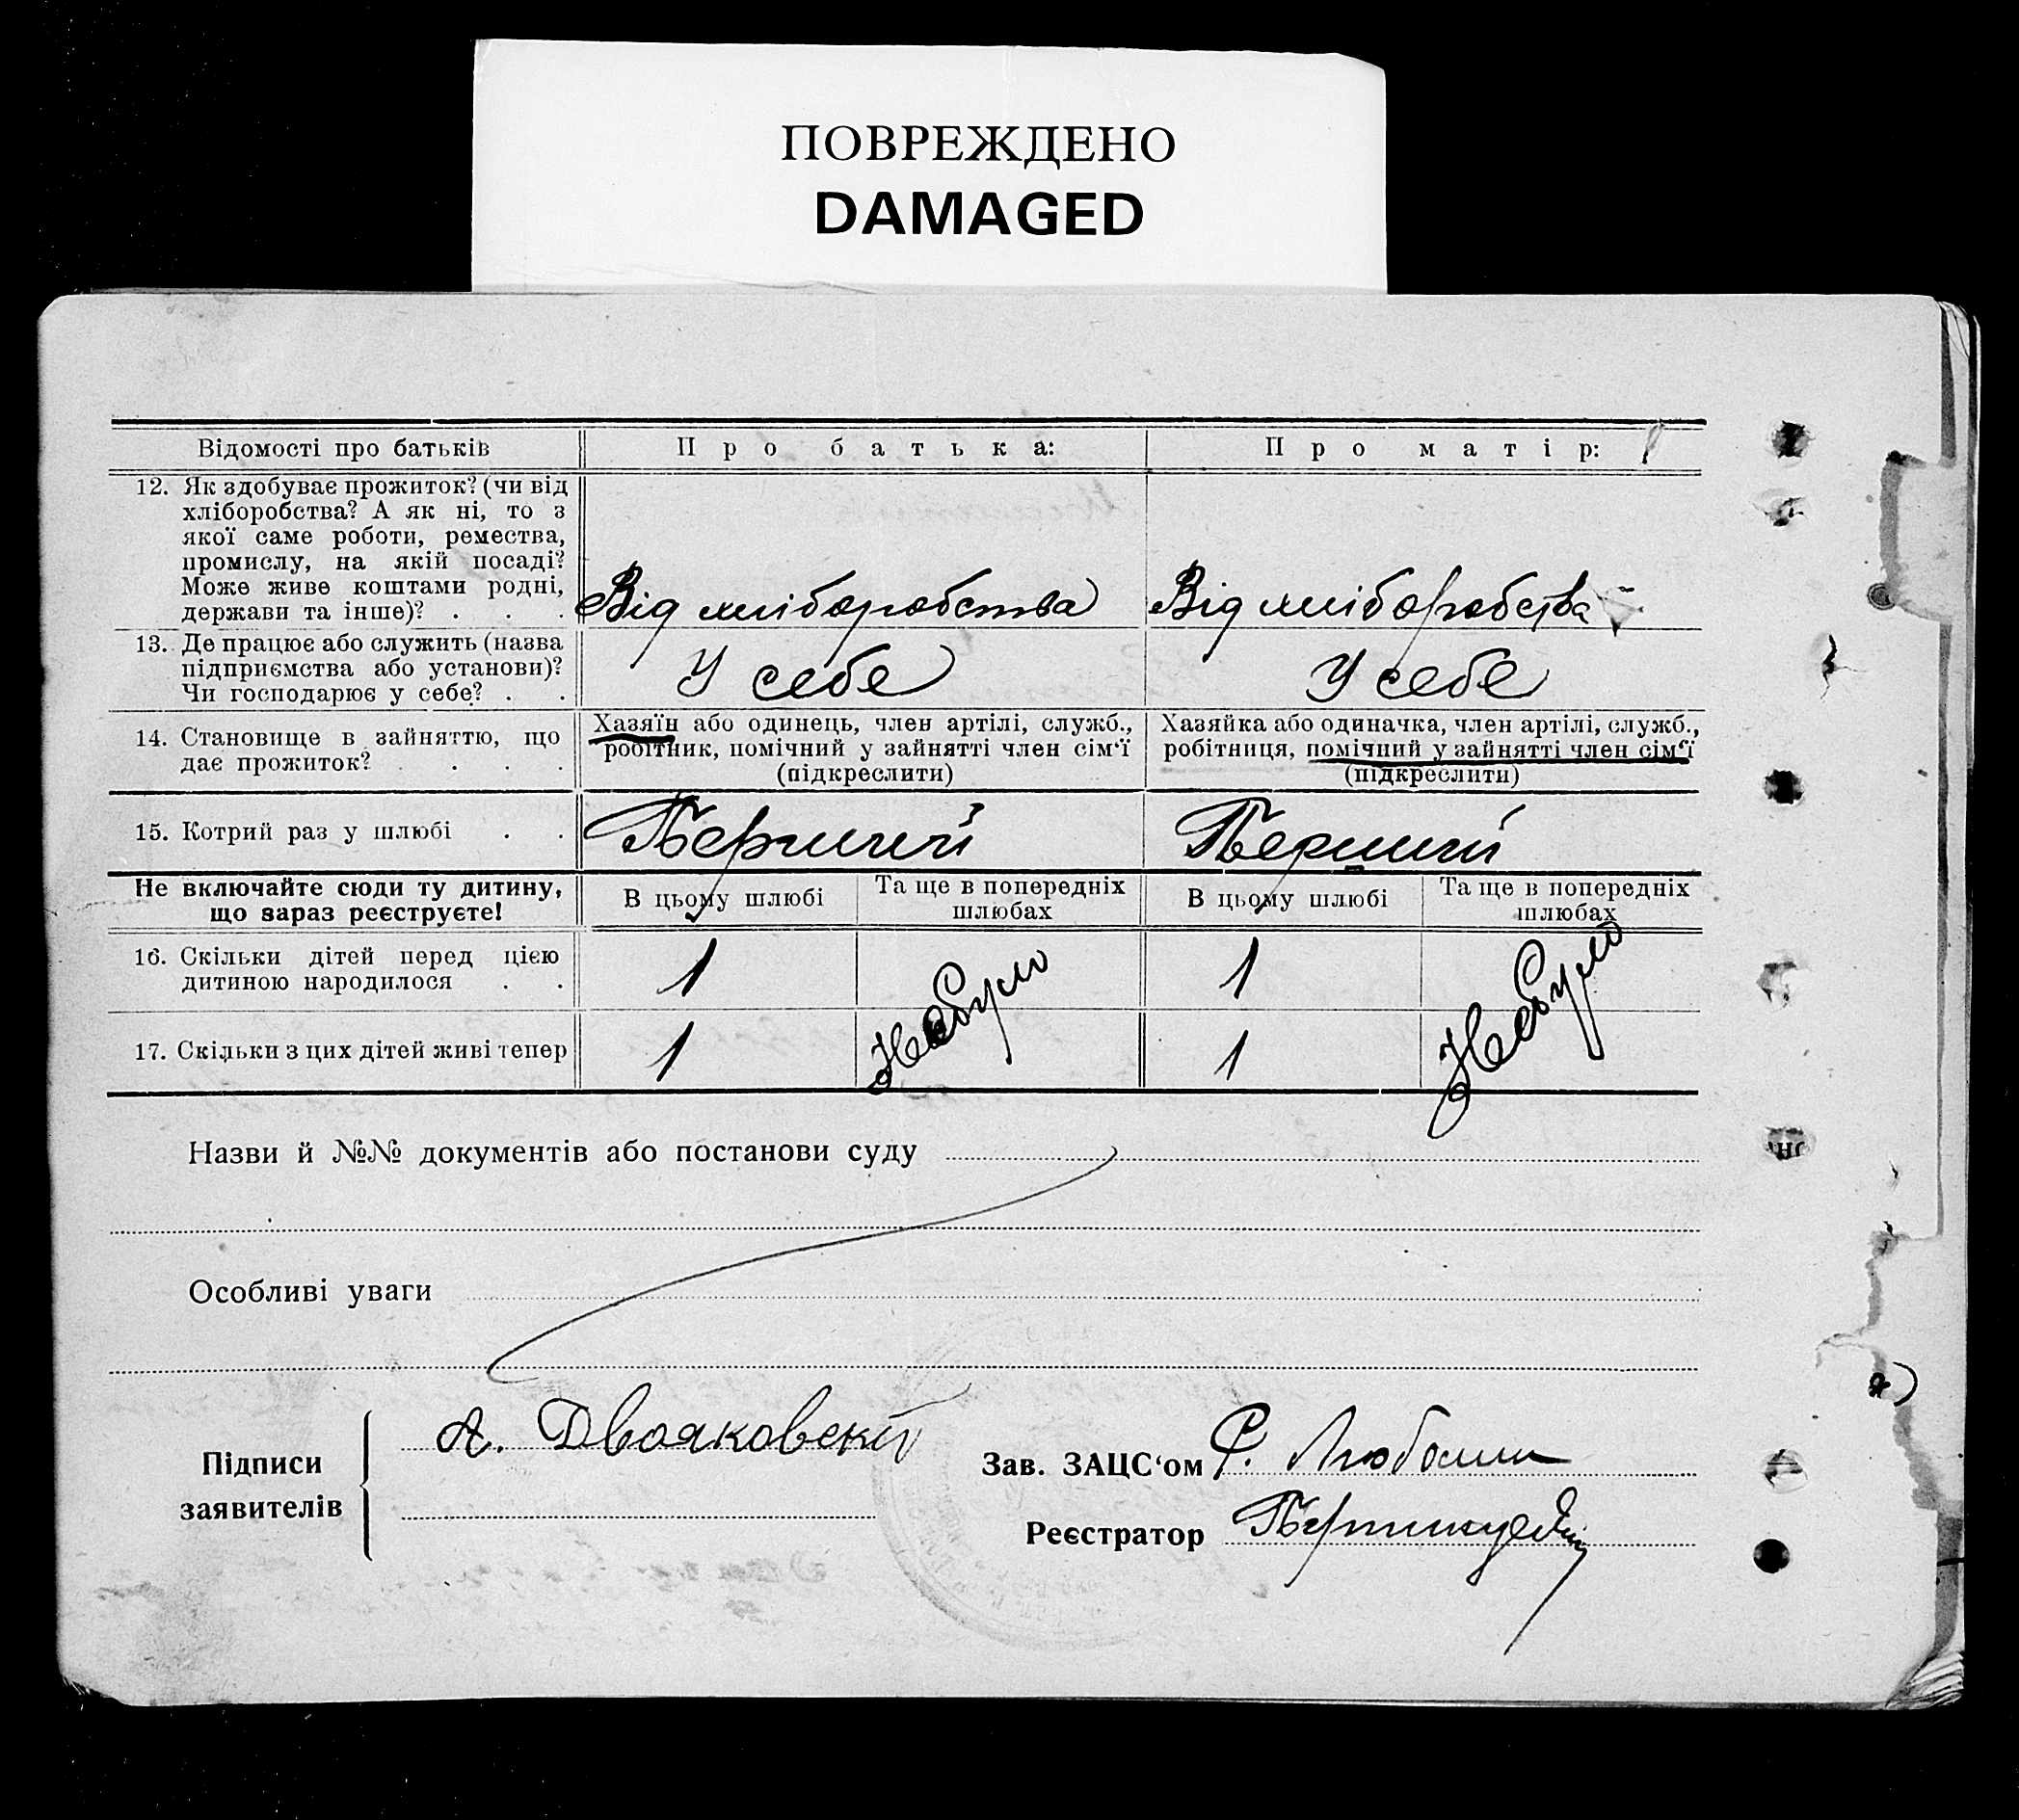 ПОВРЕЖДЕНО
DAMAGED
Відомості про батьків
Про батька:
Про матір:
12. Як здобуває прожиток? (чи від
хліборобства? А як ні, то з
якої саме роботи, ремества,
промислу, на якій посаді?
Може живе коштами родні,
держави та інше)? . . .
Від хліборобства
Від хліборобства
13. Де працює або служить (назва
підприємства або установи)?
Чи господарює у себе? . .
У себе
У себе
14. Становище в зайняттю, що
дає прожиток? . . . .
Хазяїн або одинець, член артілі, служб.,
робітник, помічний у зайнятті член сім‘ї
(підкреслити)
Хазяйка або одиначка, член артілі, служб.,
робітниця, помічний у зайнятті член сім‘ї
(підкреслити)
15. Котрий раз у шлюбі . .
Перший
Перший
Не включайте сюди ту дитину,
що зараз реєструєте!
В цьому шлюбі
Та ще в попередніх
шлюбах
В цьому шлюбі
Та ще в попередніх
шлюбах
16. Скільки дітей перед цією
дитиною народилося . .
1
Небуло
1
Небуло
17. Скільки з цих дітей живі тепер
1
1
Назви й №№ документів або постанови суду
Особливі уваги
Підписи
заявителів
А. Двояковскій
Зав. ЗАЦС‘ом
Реєстратор